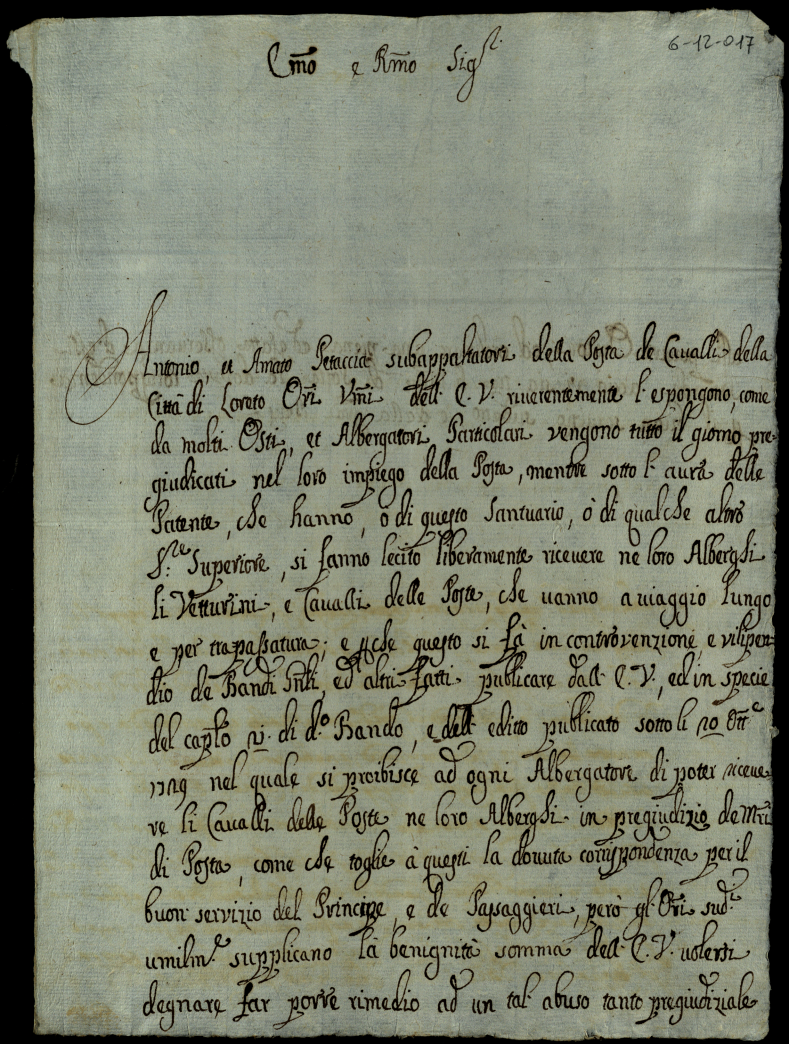 6-12-017
Emo e Rmo Sigr.
Antonio, et Amato Petaccia subappaltatori della Posta de Cavalli della
Città di Loreto Ori Umi dell'E. V. riverentemente l'espongono, come
da molti Osti, et Albergatori Particolari vengono tutto il giorno pre-
giudicati nel loro impiego della Posta, mentre sotto l'aura delle
Patente, che hanno, ò di questo Santuario, ò di qualche altro
S.re Superiore, si fanno lecito liberamente ricevere ne loro Alberghi
li Vetturini, e Cavalli delle Poste, che vanno a viaggio lungo
e per trapassatura; e perche questo si fà in controvenzione, e vilipen-
dio de Bandi Gnli, ed'altri fatti publicare dall'E. V., ed in specie
del caplo VI. di do Bando, e dell'editto publicato sotto li 20 Ottre
1729 nel quale si proibisce ad ogni Albergatore di poter riceve-
re li Cavalli delle Poste ne loro Alberghi in pregiudizio de Mri
di Posta, come che toglie à questi la dovuta corrispondenza per il
buon servizio del Principe, e de Passaggieri, però gl'Ori sudi.
umilme. supplicano la benignità somma dell'E. V. volersi
degnare far porre rimedio ad un tal'abuso tanto pregiudiziale